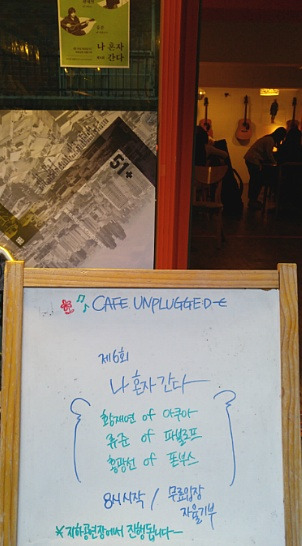 나 혼자
간다
51+
CAFE UNPLUGGED
제6회
나 혼자 간다
황재연 of 아쿠아
류준 of 파블로프
홍광선 of 폰부스
8시시작 / 무료입장
자율기부
※지하공연장에서 진행됩니다